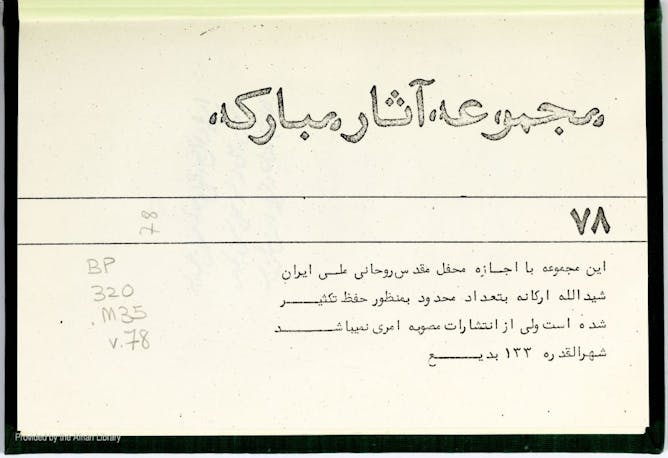 مجموعه آثار مبارکه
۷۸
78
این مجموعه با اجازه محفل مقدس روحانی ملی ایران
شیدالله ارکانه بتعداد محدود بمنظور حفظ تکثیر
شده است ولی از انتشارات مصوبه امری نمیباشد
شهرالقدره ۱۳۳ بدیع
BP
320
.M35
v.78
Provided by the Afnan Library